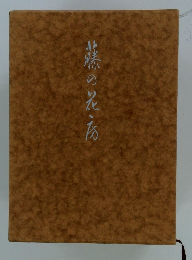 藤の花房